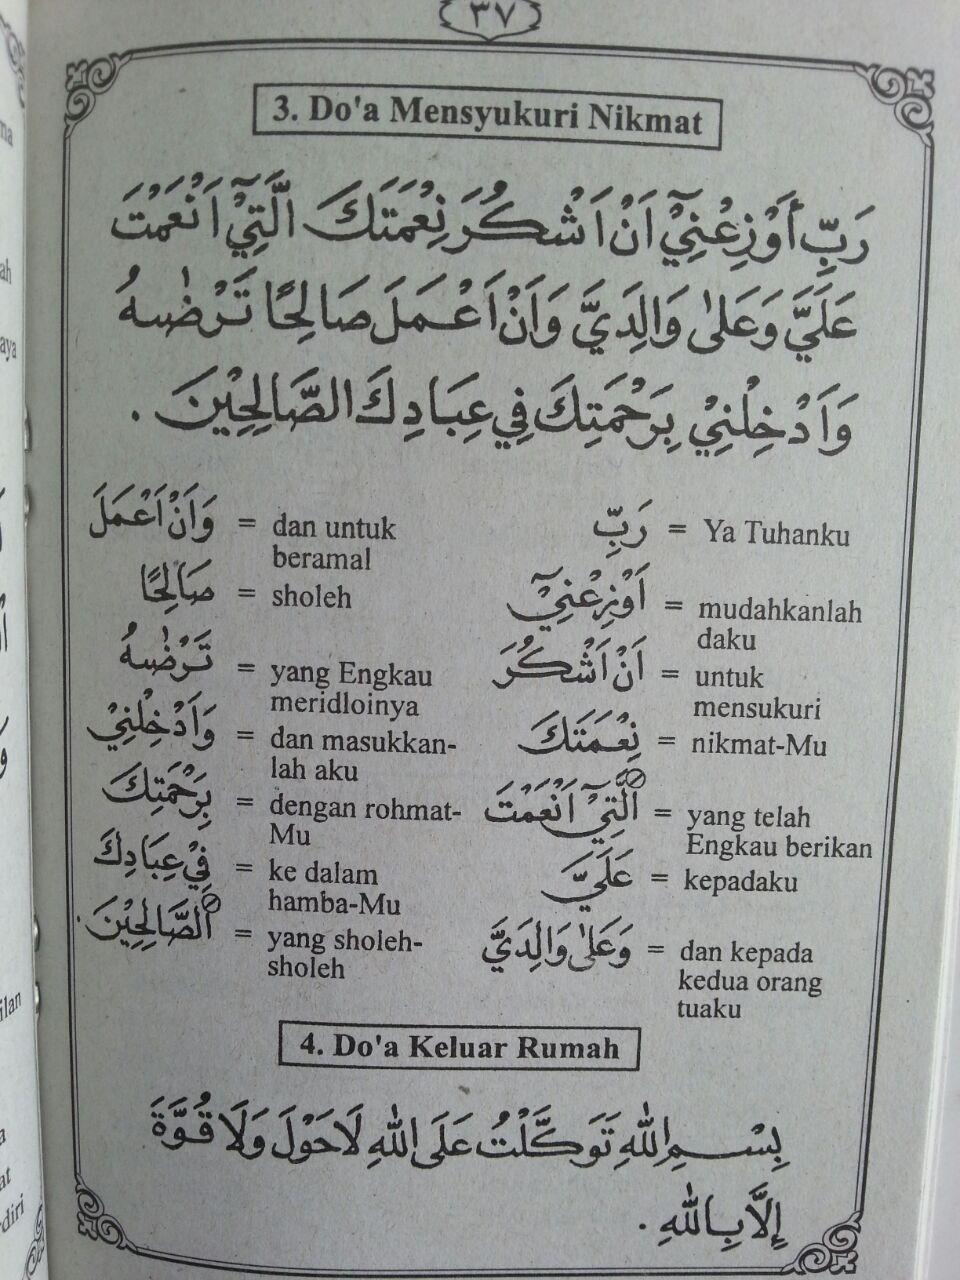 ٣٧
3. Do'a Mensyukuri Nikmat
رَبِّ أَوْزِعْنِيْٓ اَنْ اَشْكُرَ نِعْمَتَكَ الَّتِيْٓ اَنْعَمْتَ
عَلَيَّ وَعَلٰى وَالِدَيَّ وَاَنْ اَعْمَلَ صَالِحًا تَرْضٰىهُ
وَاَدْخِلْنِيْ بِرَحْمَتِكَ فِي عِبَادِكَ الصَّالِحِيْنَ .
رَبِّ = Ya Tuhanku
اَوْزِعْنِيْٓ = mudahkanlah
daku
اَنْ اَشْكُرَ = untuk
mensukuri
نِعْمَتَكَ = nikmat-Mu
الَّتِيْٓ اَنْعَمْتَ = yang telah
Engkau berikan
عَلَيَّ = kepadaku
وَعَلٰى وَالِدَيَّ = dan kepada
kedua orang
tuaku
وَاَنْ اَعْمَلَ = dan untuk
beramal
صَالِحًا = sholeh
تَرْضٰىهُ = yang Engkau
meridloinya
وَاَدْخِلْنِيْ = dan masukkan-
lah aku
بِرَحْمَتِكَ = dengan rohmat-
Mu
فِيْ عِبَادِكَ = ke dalam
hamba-Mu
الصَّالِحِيْنَ . = yang sholeh-
sholeh
4. Do'a Keluar Rumah
بِسْمِ اللهِ تَوَكَّلْتُ عَلَى اللهِ لَا حَوْلَ وَلَا قُوَّةَ
إِلَّا بِاللهِ .